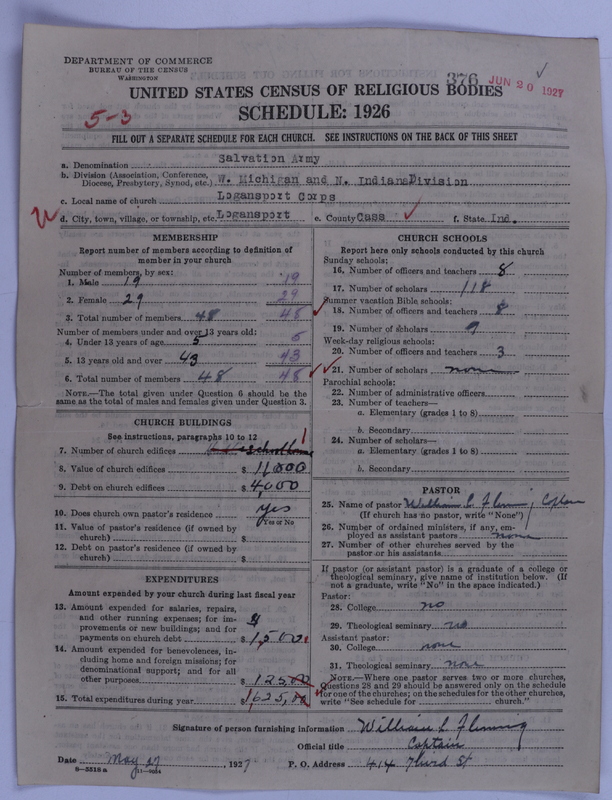 DEPARTMENT OF COMMERCE
BUREAU OF THE CENSUS
WASHINGTON
376 JUN 20 1927
UNITED STATES CENSUS OF RELIGIOUS BODIES
5-3
SCHEDULE: 1926
FILL OUT A SEPARATE SCHEDULE FOR EACH CHURCH. SEE INSTRUCTIONS ON THE BACK OF THIS SHEET
a. Denomination Salvation Army
b. Division (Association, Conference, Diocese, Presbytery, Synod, etc.) W. Michigan and N. Indiana Division
c. Local name of church Logansport Corps
d. City, town, village, or township, etc. Logansport e. County Cass f. State Ind.
MEMBERSHIP
Report number of members according to definition of
member in your church
Number of members, by sex:
1. Male 19 19
2. Female 29 29
3. Total number of members 48 48
Number of members under and over 13 years old:
4. Under 13 years of age 5 5
5. 13 years old and over 43 43
6. Total number of members 48 48
NOTE.—The total given under Question 6 should be the
same as the total of males and females given under Question 3.
CHURCH BUILDINGS
See instructions, paragraphs 10 to 12
7. Number of church edifices 1
8. Value of church edifices $ 11,000
9. Debt on church edifices $ 4,000
10. Does church own pastor's residence yes
Yes or No
11. Value of pastor's residence (if owned by
church) $
12. Debt on pastor's residence (if owned by
church) $
EXPENDITURES
Amount expended by your church during last fiscal year
13. Amount expended for salaries, repairs,
and other running expenses; for im-
provements or new buildings; and for
payments on church debt $ 1,500
14. Amount expended for benevolences, in-
cluding home and foreign missions; for
denominational support; and for all
other purposes $ 125.00
15. Total expenditures during year $ 1625.00
CHURCH SCHOOLS
Report here only schools conducted by this church
Sunday schools:
16. Number of officers and teachers 8
17. Number of scholars 118
Summer vacation Bible schools:
18. Number of officers and teachers 8
19. Number of scholars 9
Week-day religious schools:
20. Number of officers and teachers 3
21. Number of scholars none
Parochial schools:
22. Number of administrative officers
23. Number of teachers—
a. Elementary (grades 1 to 8)
b. Secondary
24. Number of scholars—
a. Elementary (grades 1 to 8)
b. Secondary
PASTOR
25. Name of pastor William L. Fleming Captain
(If church has no pastor, write "None")
26. Number of ordained ministers, if any, em-
ployed as assistant pastors none
27. Number of other churches served by the
pastor or his assistants
If pastor (or assistant pastor) is a graduate of a college or
theological seminary, give name of institution below. (If
not a graduate, write "No" in the space indicated.)
Pastor:
28. College no
29. Theological seminary no
Assistant pastor:
30. College none
31. Theological seminary none
NOTE.—Where one pastor serves two or more churches,
Questions 28 and 29 should be answered only on the schedule
for one of the churches; on the schedules for the other churches,
write "See schedule for church."
Signature of person furnishing information William L Fleming
Official title Captain
Date May 27, 1927 P. O. Address 414 Third St
8—5518 a 11—9034